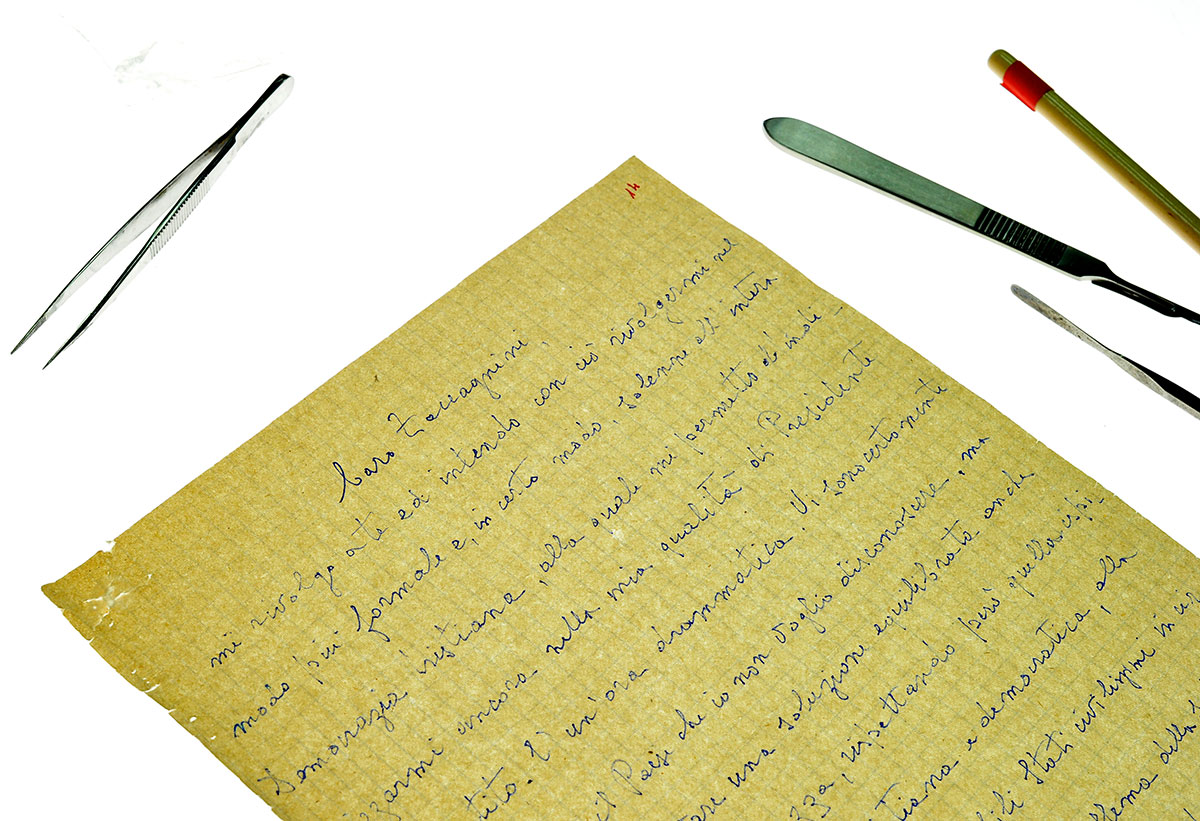 14
Caro Zaccagnini,
mi rivolgo a te ed intendo con ciò rivolgermi nel
modo più formale e, in certo modo, solenne all'intera
Democrazia Cristiana, alla quale mi permetto di indi-
zzarmi ancora nella mia qualità di Presidente
tito. È un'ora drammatica. Vi sono certamente
il Paese che io non voglio disconoscere, ma
are una soluzione equilibrata anche
zza, rispettando però quella ispi-
tiana e democratica, alla
ili Stati civilissimi in
lema della